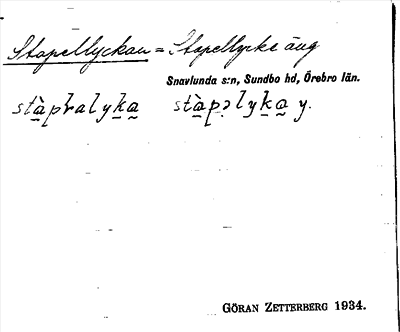 Stapellyckan = Stapellycke äng
Snavlunda s:n, Sundbo hd, Örebro län.
stàpralyka stàpəlyka y.
GÖRAN ZETTERBERG 1934.